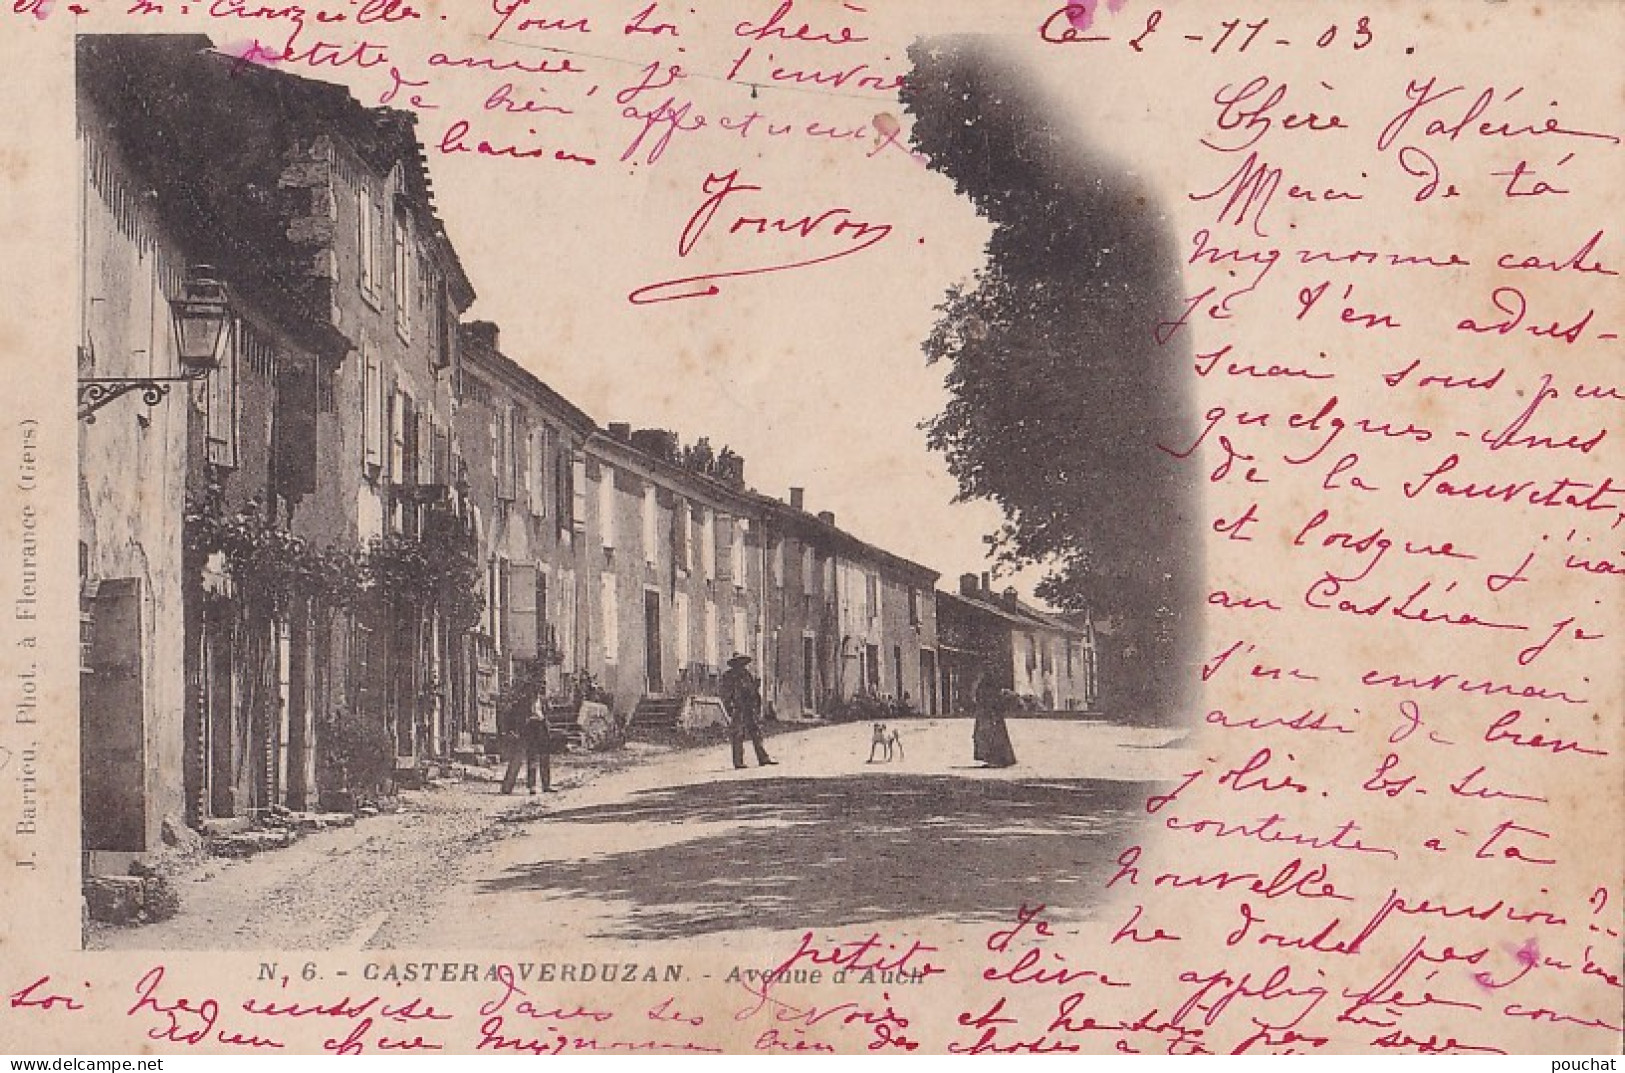 Ce 2-11-03.
Chère Valérie
Merci de ta
mignonne carte
je t'en adres-
serai sous peu
quelques-unes
de la Sauvetat,
et lorsque j'irai
au Castéra je
t'en enverrai
aussi de bien
jolies. Es-tu
contente à ta
nouvelle pension?
Je ne doute pas qu'une
petite élève appliquée comme
toi ne réussisse dans ses devoirs et ne soit pas
Adieu chère mignonne bien des choses à ta
et à Mr Crouzeilles. Pour toi chère
petite amie, je t'envoie
de bien affectueux
baisers.
Yonvon.
N, 6. - CASTERA-VERDUZAN. - Avenue d'Auch
J. Barrieu, Phot. à Fleurance (Gers)
pouchat